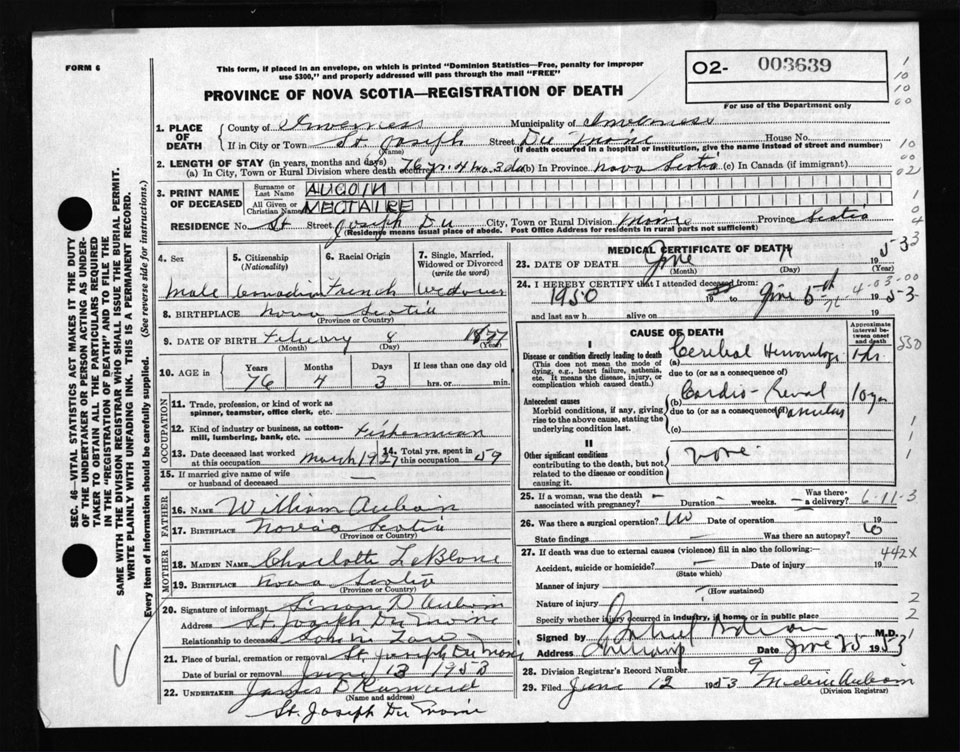 FORM 6
This form, if placed in an envelope, on which is printed "Dominion Statistics—Free, penalty for improper
use $300," and properly addressed will pass through the mail "FREE"
O2- 003639
For use of the Department only
PROVINCE OF NOVA SCOTIA—REGISTRATION OF DEATH
1. PLACE OF DEATH County of Inverness Municipality of Inverness
If in City or Town St. Joseph Street Du Moine House No.
(Name) (If death occurred in a hospital or institution, give the name instead of street and number)
2. LENGTH OF STAY (in years, months and days)
(a) In City, Town or Rural Division where death occurred 76 yr. 4 mo. 3 da (b) In Province Nova Scotia (c) In Canada (if immigrant)
3. PRINT NAME OF DECEASED Surname or Last Name AUCOIN
All Given or Christian Names MECTAIRE
RESIDENCE No. St Street Joseph Du City, Town or Rural Division Moine Province Scotia
(Residence means usual place of abode. Post Office Address for residents in rural parts not sufficient)
4. Sex 5. Citizenship (Nationality) 6. Racial Origin 7. Single, Married, Widowed or Divorced (write the word)
Male Canadian French Widower
8. BIRTHPLACE Nova Scotia
(Province or Country)
9. DATE OF BIRTH February 8 1877
(Month) (Day) (Year)
10. AGE in Years Months Days If less than one day old
76 4 3 hrs. or min.
OCCUPATION
11. Trade, profession, or kind of work as
spinner, teamster, office clerk, etc.
12. Kind of industry or business, as cotton-
mill, lumbering, bank, etc. Fisherman
13. Date deceased last worked at this occupation March 19 14. Total yrs. spent in this occupation 59
15. If married give name of wife
or husband of deceased
FATHER
16. Name William Aucoin
17. Birthplace Nova Scotia
(Province or Country)
MOTHER
18. Maiden Name Charlotte LeBlanc
19. Birthplace Nova Scotia
(Province or Country)
20. Signature of informant Simon D Aucoin
Address St. Joseph Du Moine
Relationship to deceased Son in Law
21. Place of burial, cremation or removal St. Joseph Du Moine
Date of burial or removal June 13 1953
22. UNDERTAKER James D
(Name and address)
St. Joseph Du Moine
MEDICAL CERTIFICATE OF DEATH
23. DATE OF DEATH June 1953
(Month) (Day) (Year)
24. I HEREBY CERTIFY that I attended deceased from
1950 19 to June 5th 1953
and last saw h alive on 19
CAUSE OF DEATH
Approximate interval between onset and death
I
Disease or condition directly leading to death
(This does not mean the mode of
dying, e.g., heart failure, asthenia,
etc. It means the disease, injury, or
complication which caused death.)
(a) Cerebral
due to (or as a consequence of)
Antecedent causes
Morbid conditions, if any, giving
rise to the above cause, stating the
underlying condition last.
(b) Cardio-Renal 10 yrs
due to (or as a consequence of)
(c)
II
Other significant conditions
contributing to the death, but not
related to the disease or condition
causing it.
none
25. If a woman, was the death associated with pregnancy? Duration weeks. Was there a delivery? 6-11-3
26. Was there a surgical operation? No Date of operation 19
State findings Was there an autopsy?
27. If death was due to external causes (violence) fill in also the following: 442X
Accident, suicide or homicide? Date of injury 19
(State which)
Manner of injury
(How sustained)
Nature of injury
Specify whether injury occurred in industry, in home, or in public place
Signed by M.D.
Address Date June 25 1953
28. Division Registrar's Record Number 9
29. Filed June 12 1953 Aucoin
(Division Registrar)
SEC. 46—VITAL STATISTICS ACT MAKES IT THE DUTY
OF THE UNDERTAKER OR PERSON ACTING AS UNDER-
TAKER TO OBTAIN ALL THE PARTICULARS REQUIRED
IN THE "REGISTRATION OF DEATH" AND TO FILE THE
SAME WITH THE DIVISION REGISTRAR WHO SHALL ISSUE THE BURIAL PERMIT.
WRITE PLAINLY WITH UNFADING INK. THIS IS A PERMANENT RECORD.
Every item of information should be carefully supplied. (See reverse side for instructions.)